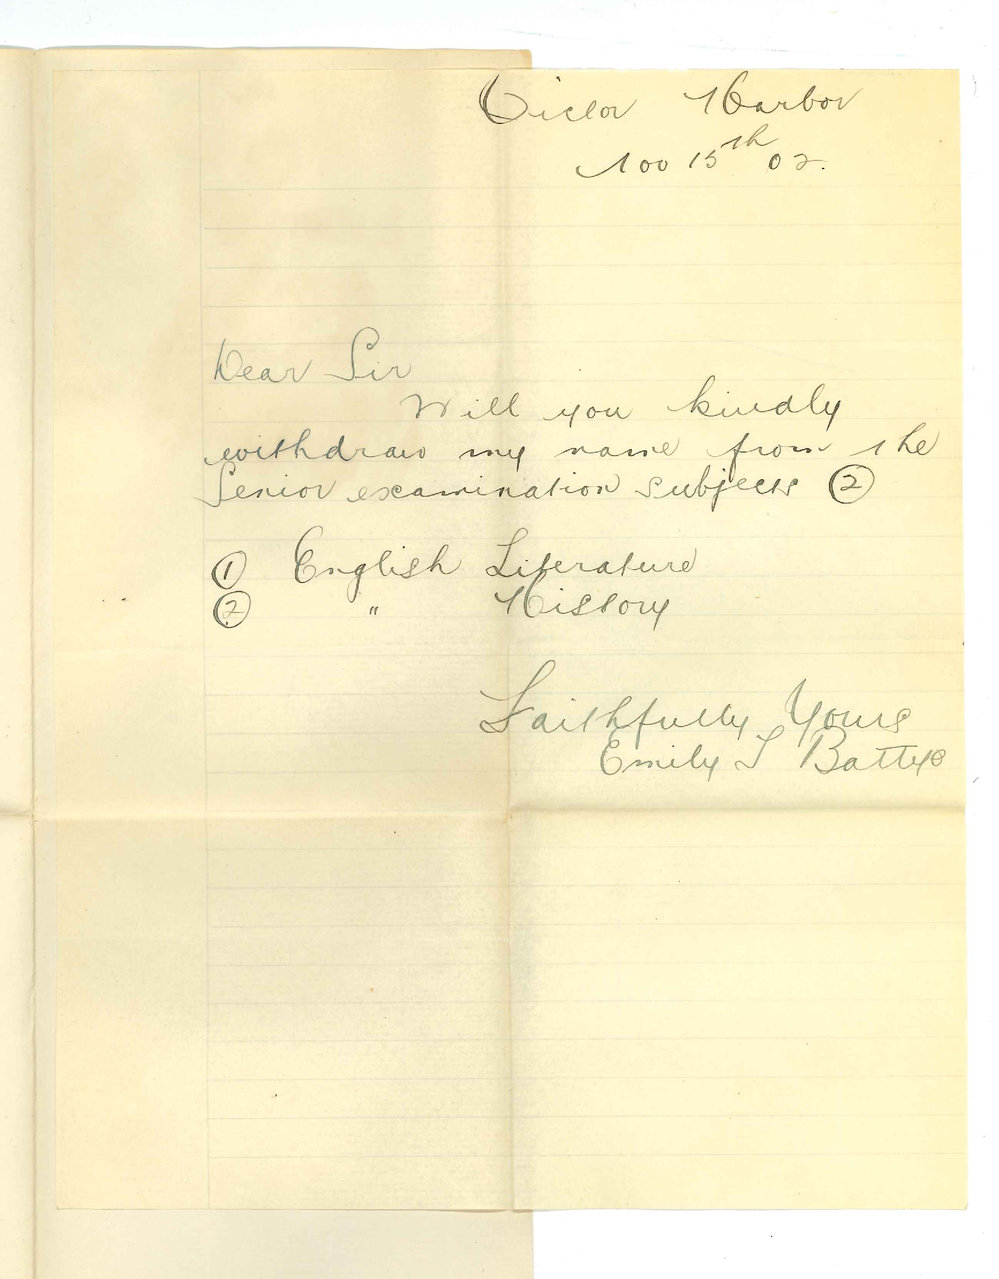 Victor Harbor
Nov 15th 02.
Dear Sir
Will you kindly
withdraw my name from the
Senior examination subjects (2)
(1) English Literature
(2) " History
Faithfully Yours
Emily J Battye